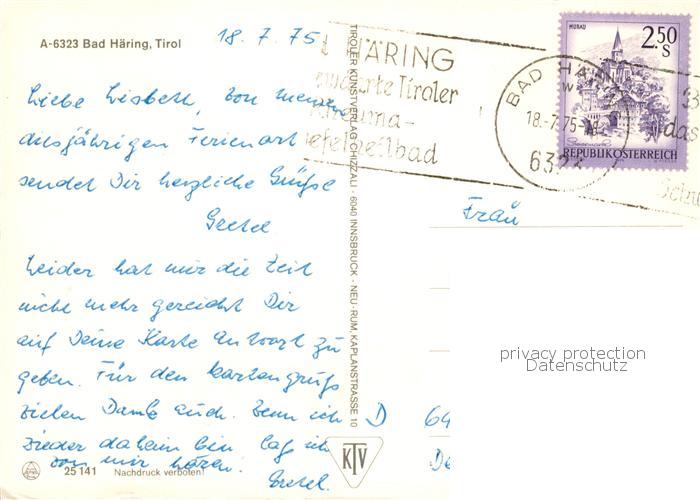 A-6323 Bad Häring, Tirol
18. 7. 75
Liebe Lisbeth, von meinem
diesjährigen Ferienort
sendet Dir herzliche Grüße
Gretel
Leider hat mir die Zeit
nicht mehr gereicht Dir
auf Deine Karte Antwort zu
geben. Für den Kartengruß
vielen Dank auch. Wenn ich
wieder daheim bin laß ich
von mir hören.
Gretel.
25 141 Nachdruck verboten!
TIROLER KUNSTVERLAG CHIZZALI · 6040 INNSBRUCK - NEU-RUM, KAPLANSTRASSE 10
KTV
HÄRING
Tiroler
BAD HÄRING
18.-7.75
6323
MURAU
2.50
S
REPUBLIK ÖSTERREICH
das
Frau
privacy protection
Datenschutz
D 64
De